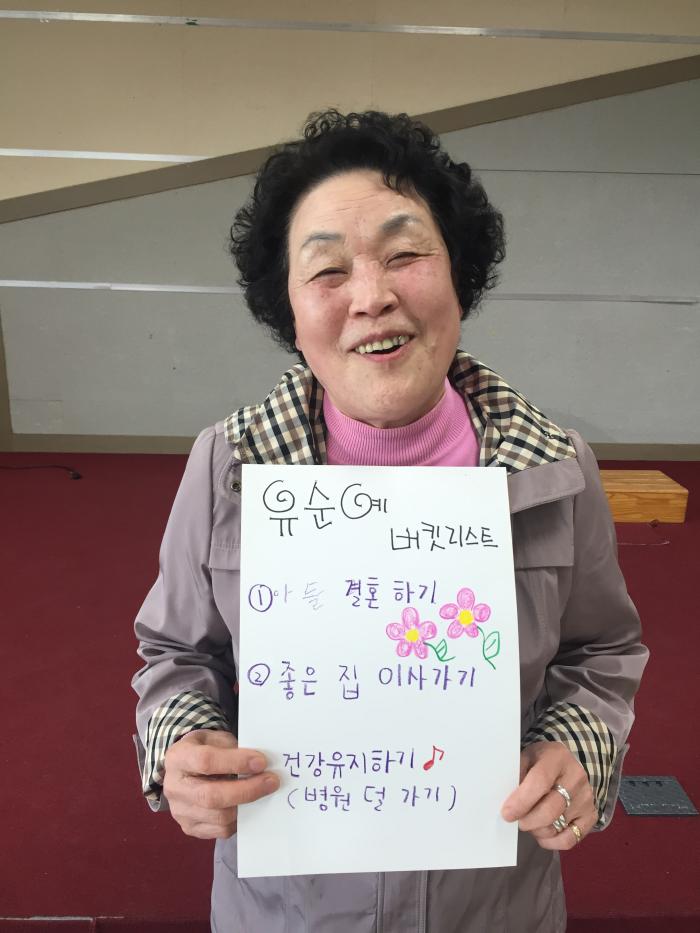 유순예
버킷리스트
① 아들 결혼 하기
② 좋은 집 이사가기
건강유지하기
(병원 덜 가기)